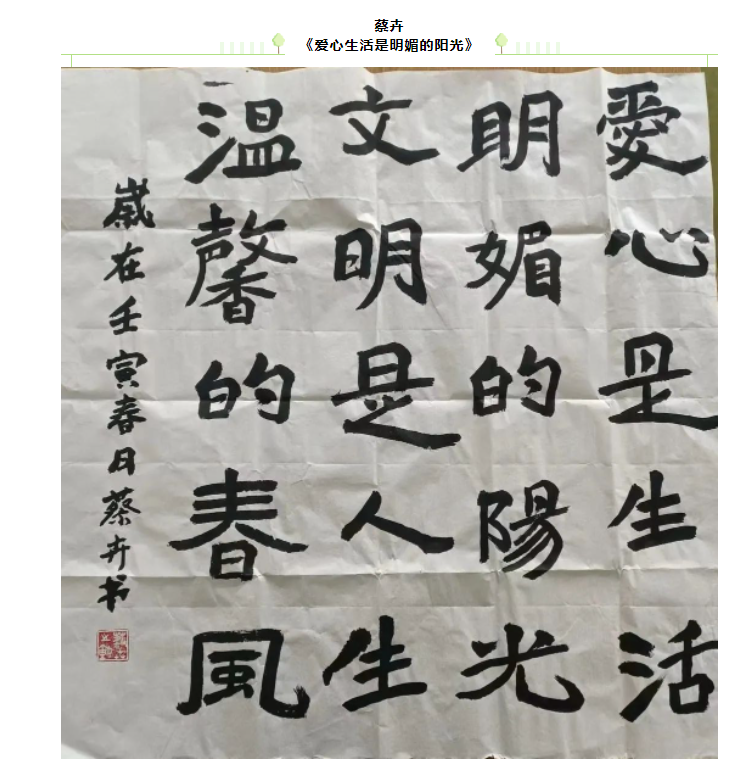 蔡卉
《爱心生活是明媚的阳光》
愛心是生活
明媚的陽光
文明是人生
温馨的春風
歲在壬寅春月蔡卉书